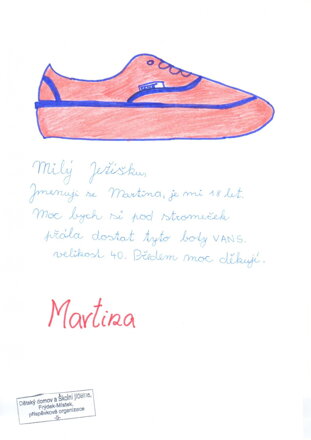 VANS
Milý Ježíšku,
Jmenuji se Martina, je mi 18 let.
Moc bych si pod stromeček
přála dostat tyto boty VANS.
velikost 40. Předem moc děkuji.
Martina
Dětský domov a Školní jídelna,
Frýdek-Místek,
příspěvková organizace